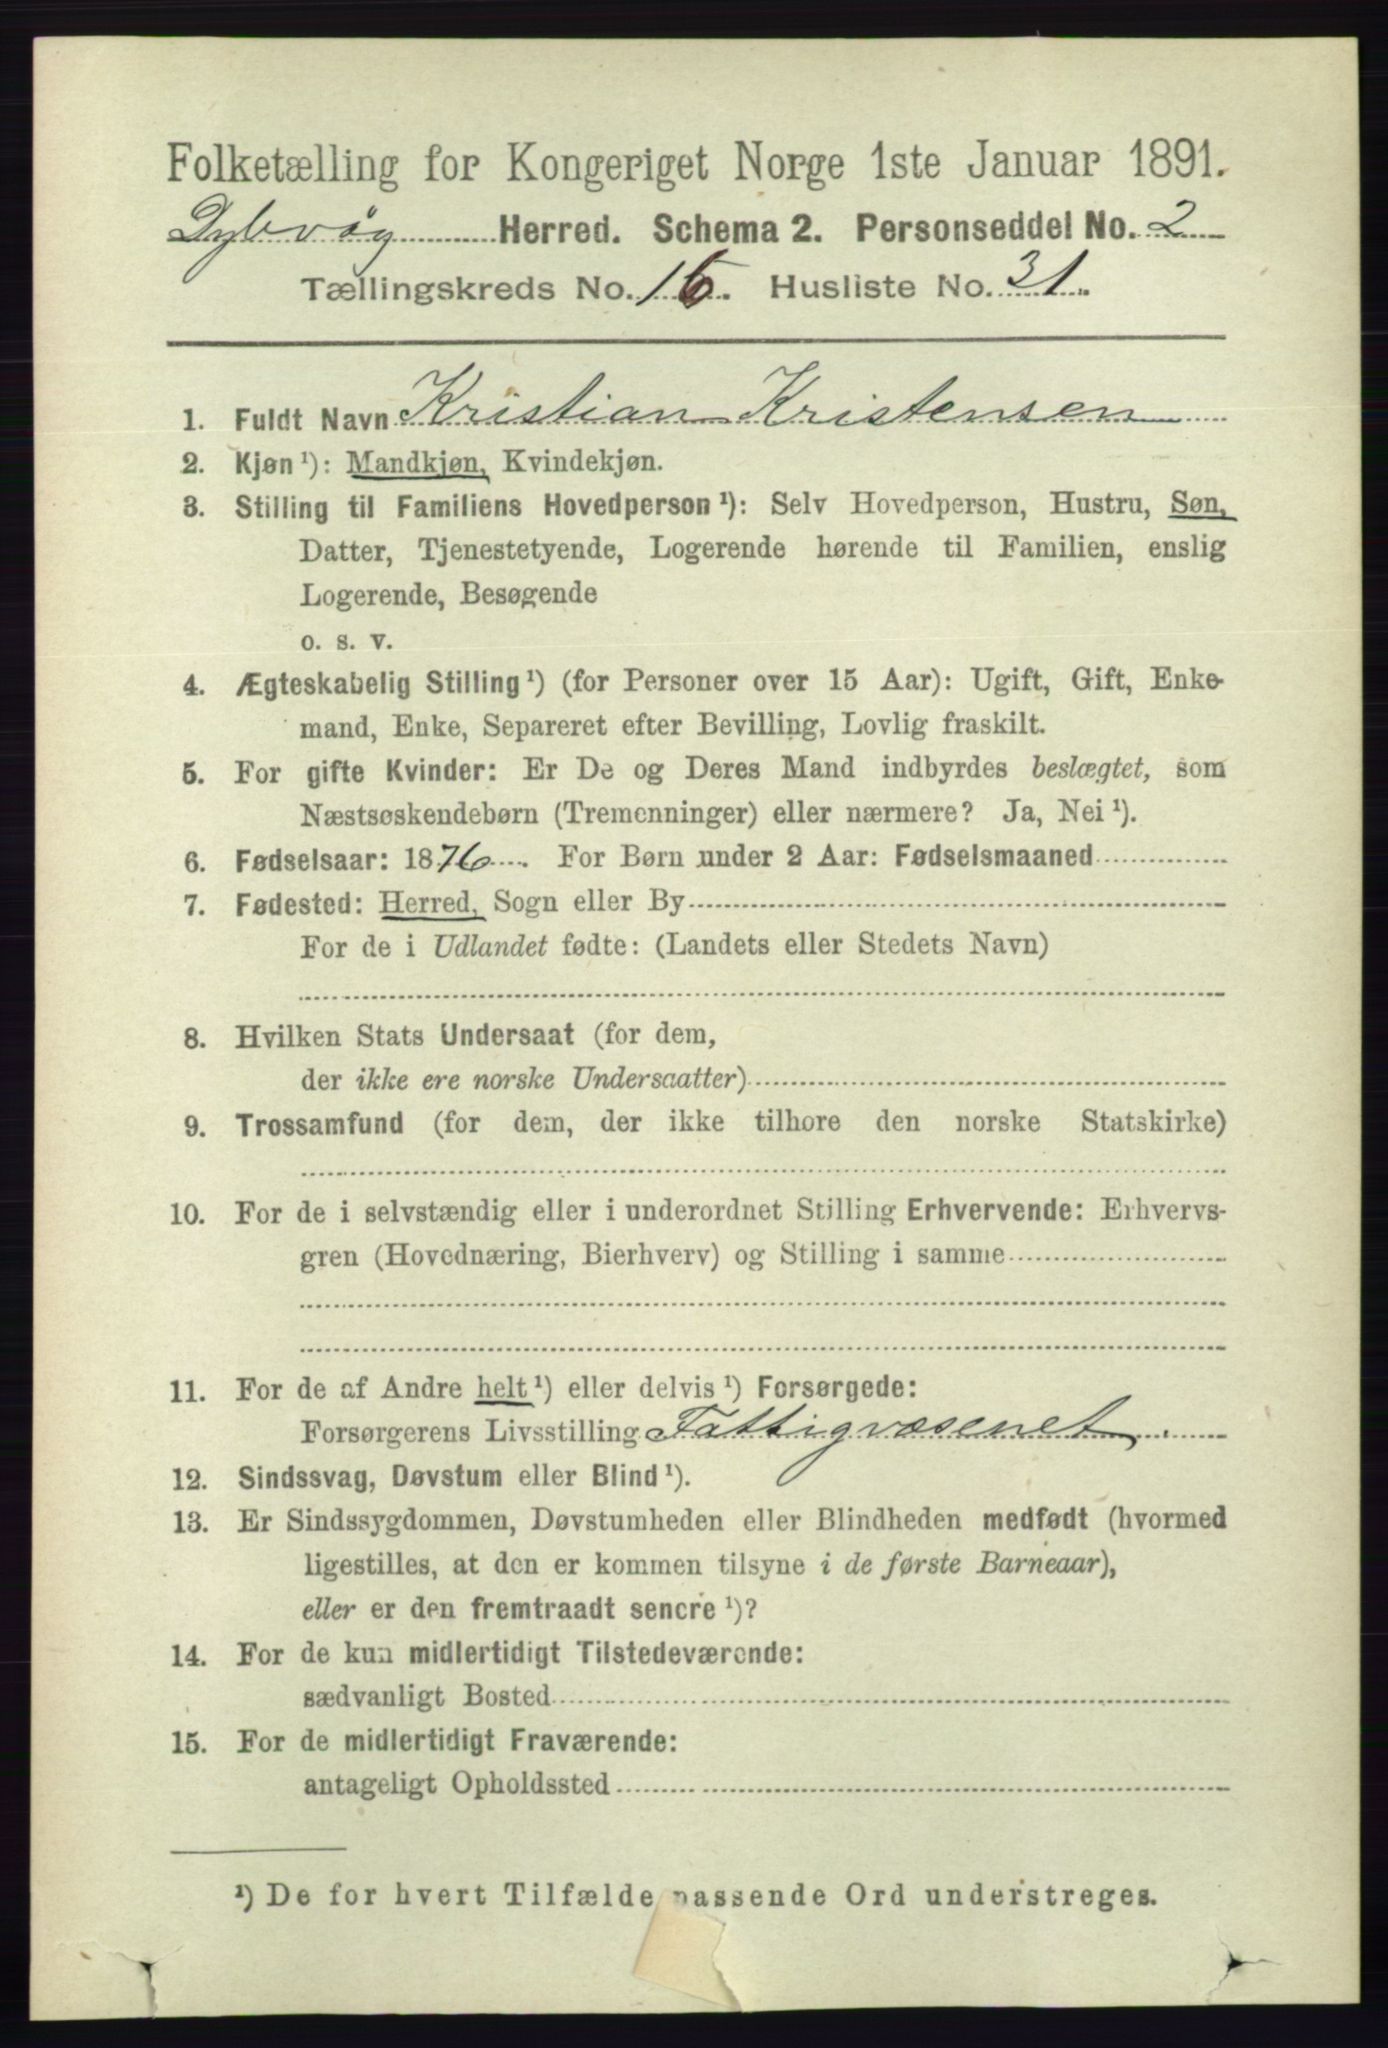 Folketælling for Kongeriget Norge 1ste Januar 1891.
Dybvåg Herred. Schema 2. Personseddel No. 2
Tællingskreds No. 16. Husliste No. 31.
1. Fuldt Navn Kristian Kristensen
2. Kjøn ¹): Mandkjøn, Kvindekjøn.
3. Stilling til Familiens Hovedperson ¹): Selv Hovedperson, Hustru, Søn,
Datter, Tjenestetyende, Logerende hørende til Familien, enslig
Logerende, Besøgende
o. s. v.
4. Ægteskabelig Stilling ¹) (for Personer over 15 Aar): Ugift, Gift, Enke-
mand, Enke, Separeret efter Bevilling, Lovlig fraskilt.
5. For gifte Kvinder: Er De og Deres Mand indbyrdes beslægtet, som
Næstsøskendebørn (Tremenninger) eller nærmere? Ja, Nei ¹).
6. Fødselsaar: 1876. For Børn under 2 Aar: Fødselsmaaned
7. Fødested: Herred, Sogn eller By
For de i Udlandet fødte: (Landets eller Stedets Navn)
8. Hvilken Stats Undersaat (for dem,
der ikke ere norske Undersaatter)
9. Trossamfund (for dem, der ikke tilhøre den norske Statskirke)
10. For de i selvstændig eller i underordnet Stilling Erhvervende: Erhvervs-
gren (Hovednæring, Bierhverv) og Stilling i samme
11. For de af Andre helt ¹) eller delvis ¹) Forsørgede:
Forsørgerens Livsstilling Fattigvæsenet.
12. Sindssvag, Døvstum eller Blind ¹).
13. Er Sindssygdommen, Døvstumheden eller Blindheden medfødt (hvormed
ligestilles, at den er kommen tilsyne i de første Barneaar),
eller er den fremtraadt senere ¹)?
14. For de kun midlertidigt Tilstedeværende:
sædvanligt Bosted
15. For de midlertidigt Fraværende:
antageligt Opholdssted
¹) De for hvert Tilfælde passende Ord understreges.